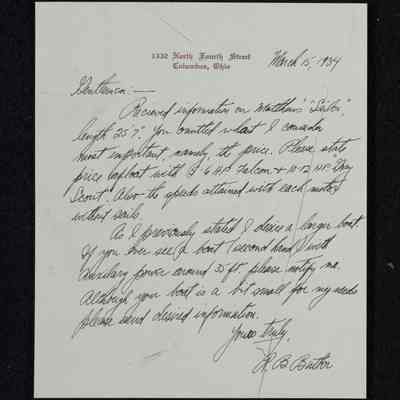 1332 North Fourth Street
Columbus, Ohio
March 15, 1934
Gentlemen:—
Received information on Matthews "Sailer",
length 25'7". You omitted what I consider
most important, namely, the price. Please state
price of boat with 6 HP Falcon & 10-12 HP "Gray
Scout". Also the speeds attained with each motor
without sails.
As I previously stated I desire a larger boat.
If you ever see a boat (second hand) with
auxiliary power around 35 ft. please notify me.
Although your boat is a bit small for my needs
please send desired information.
Yours truly,
R. B.